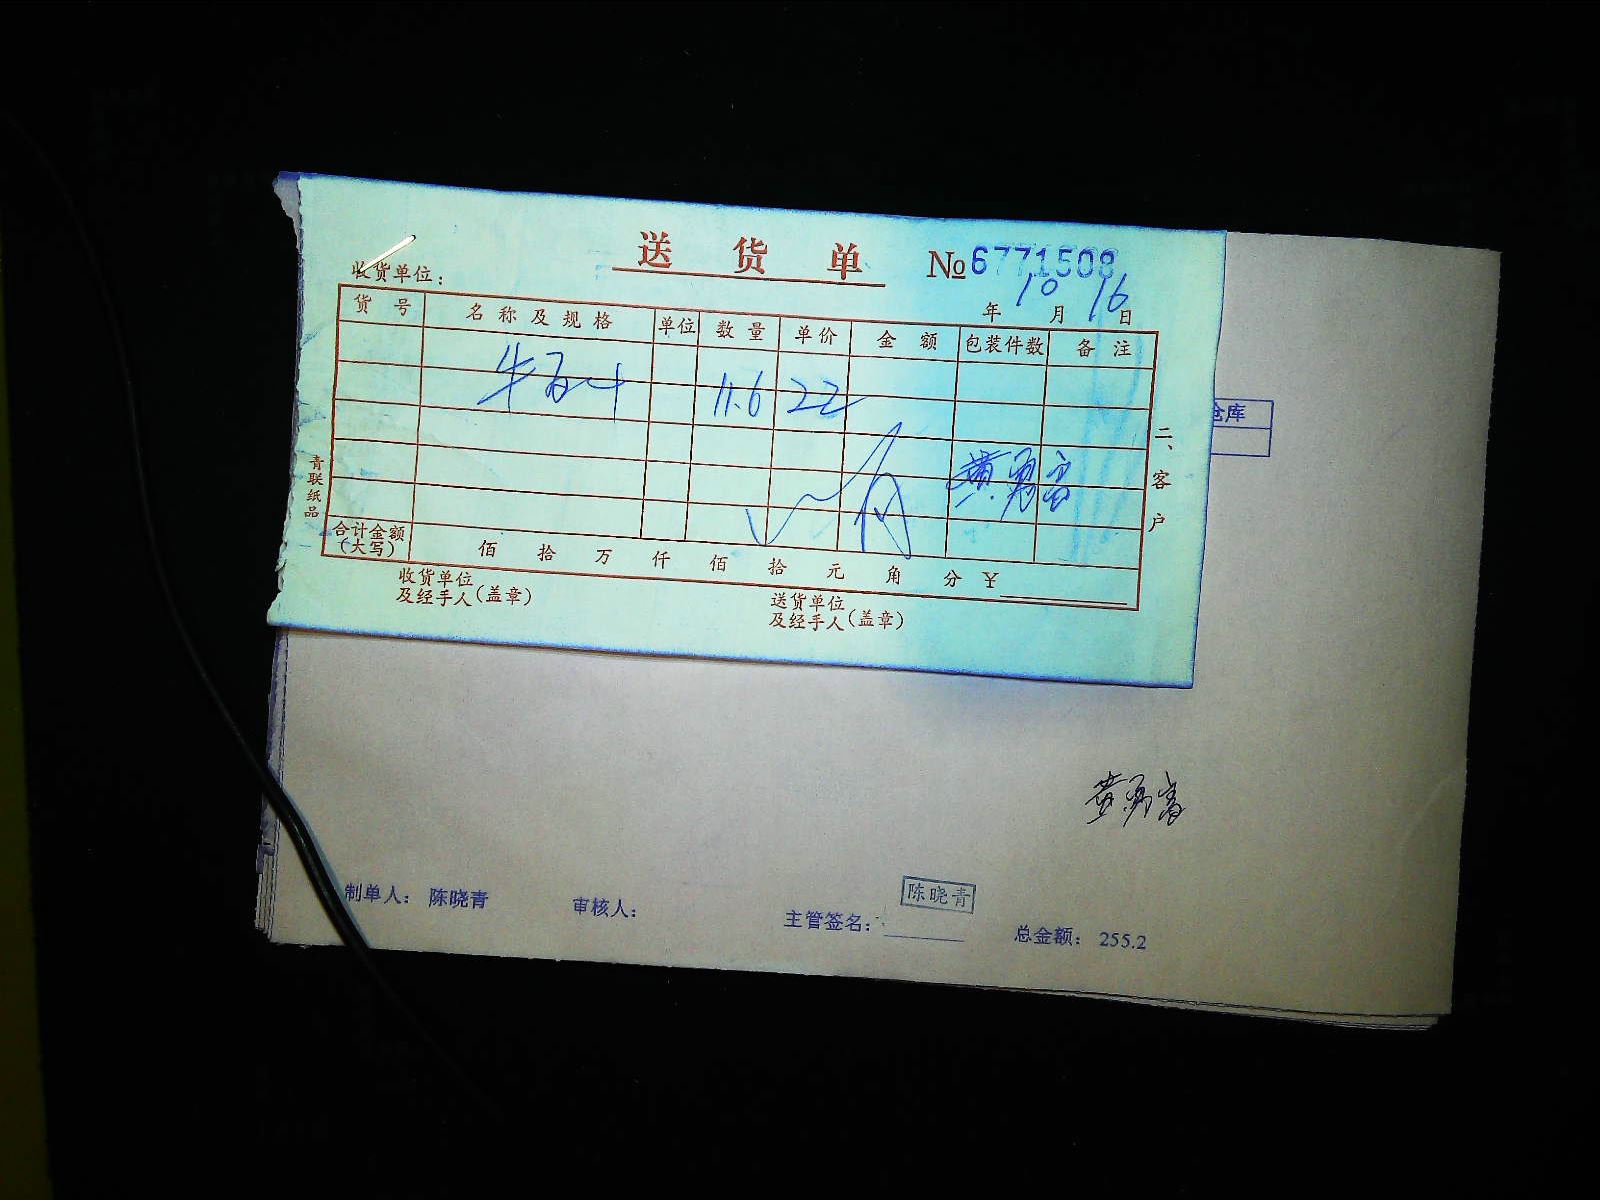 送货单 №6771508
收货单位：
年 10 月 16 日
货号 名称及规格 单位 数量 单价 金额 包装件数 备注
牛百叶 11.6 22
黄勇富
合计金额（大写） 佰 拾 万 仟 佰 拾 元 角 分 ¥
收货单位及经手人（盖章）
送货单位及经手人（盖章）
青联纸品
二、客户
仓库
陈晓青
制单人： 陈晓青 审核人： 主管签名： 总金额： 255.2